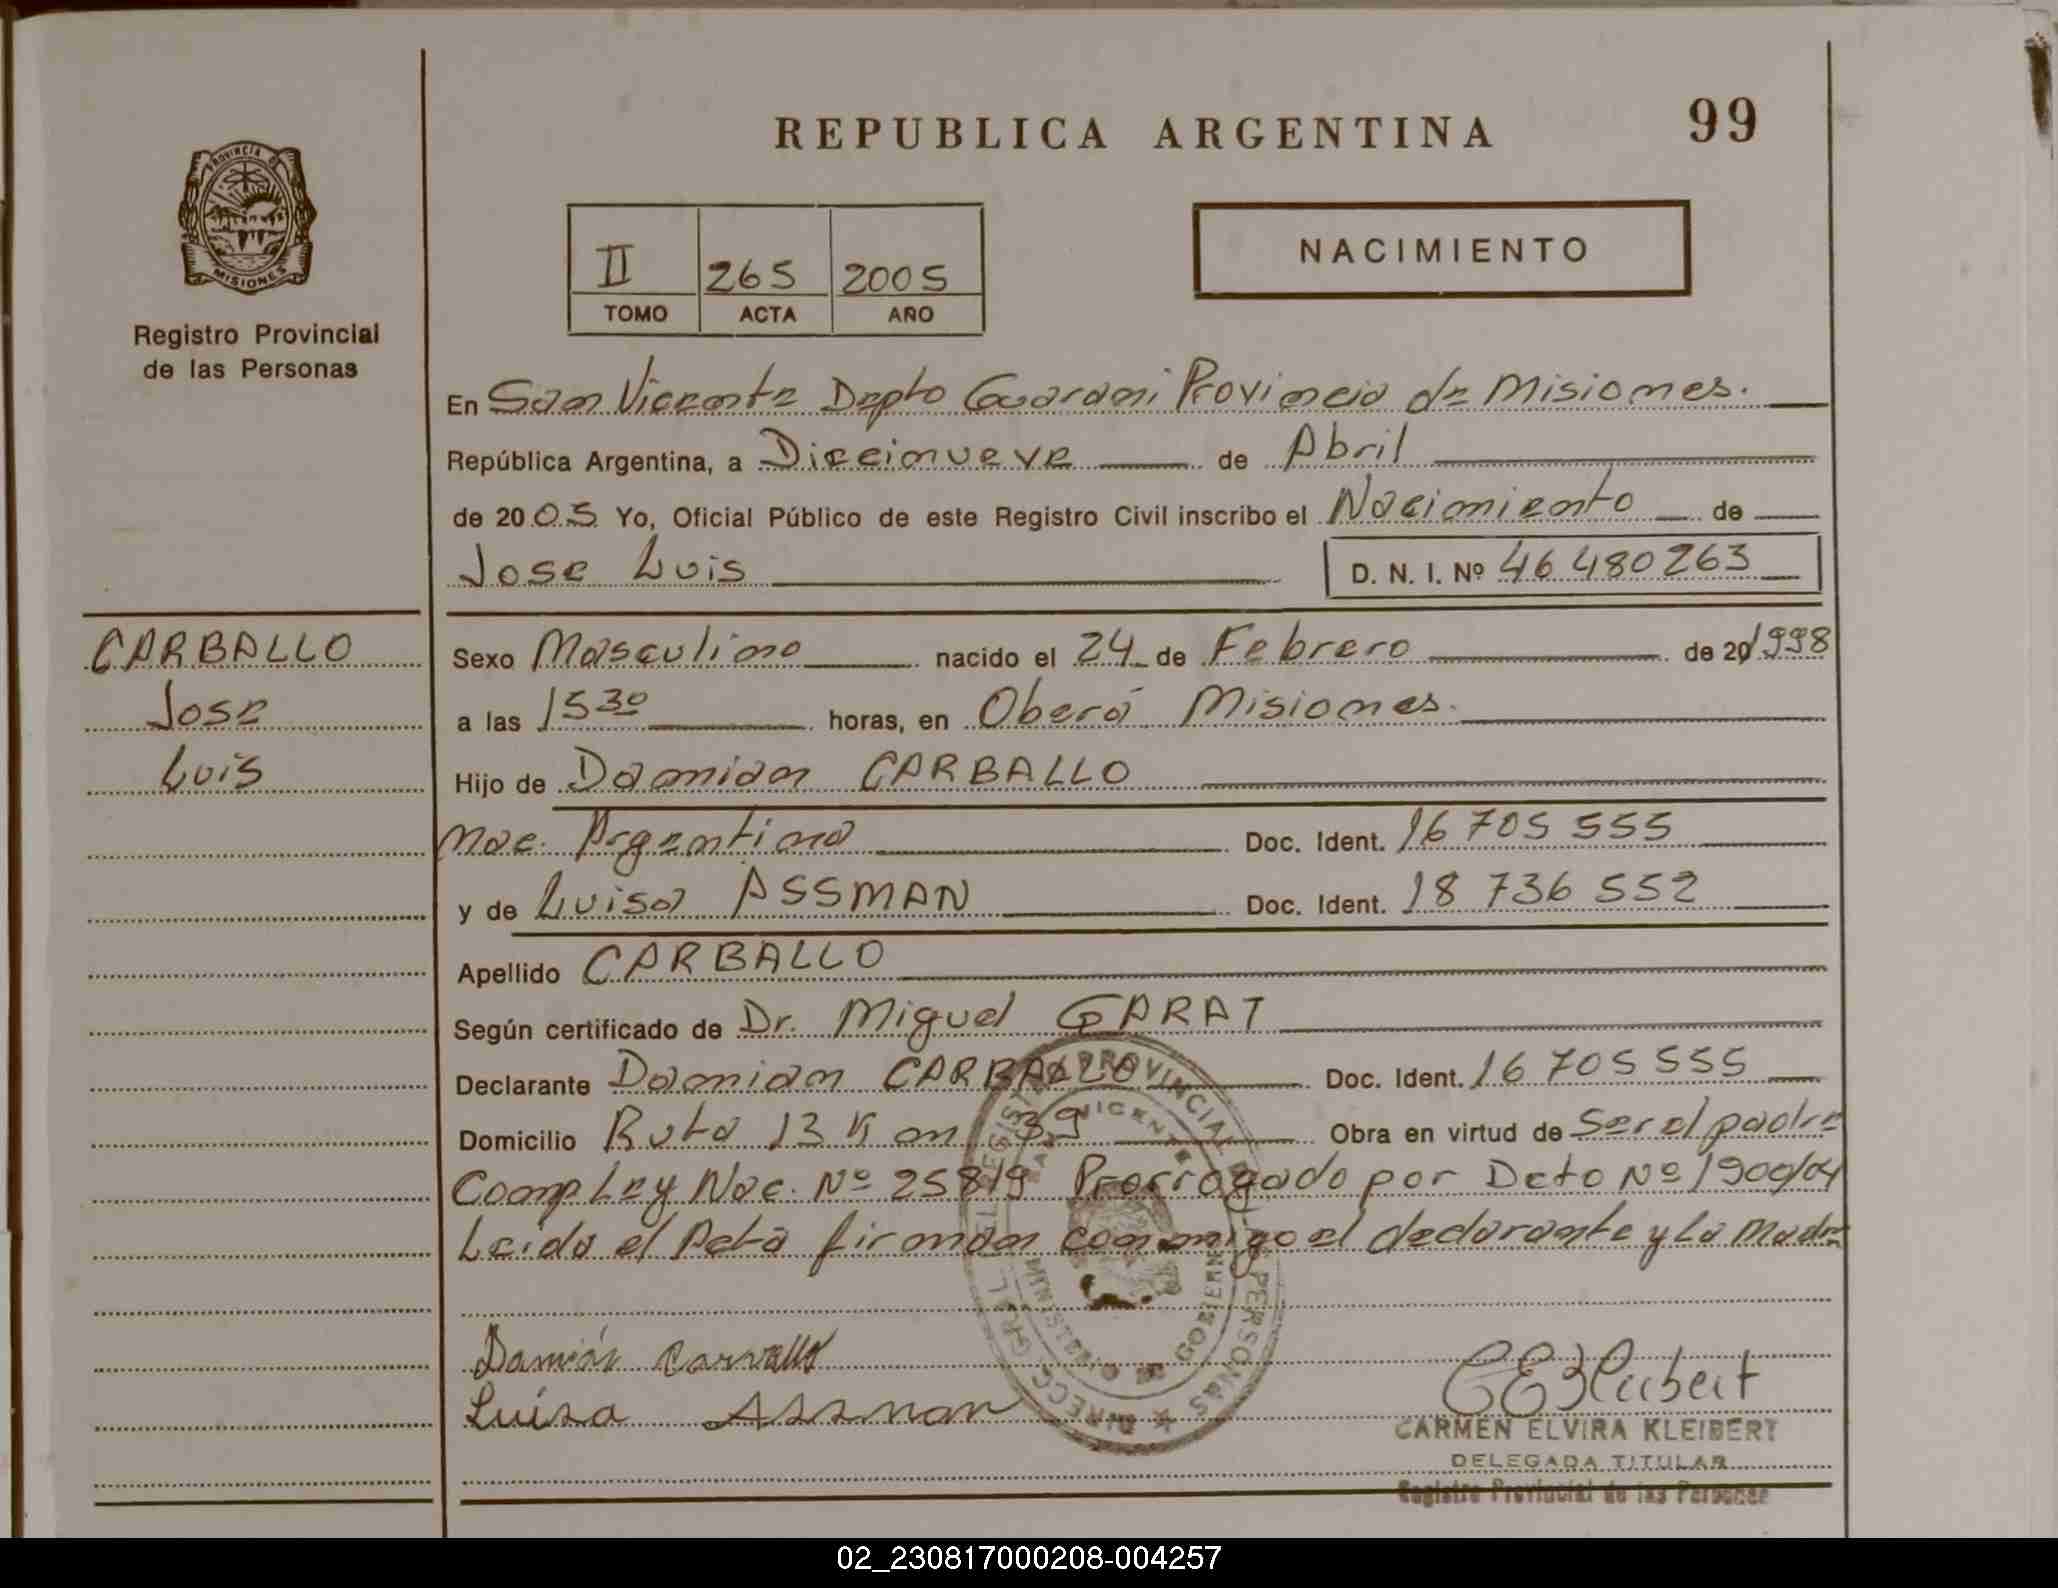 REPUBLICA ARGENTINA
99
PROVINCIA DE
MISIONES
Registro Provincial
de las Personas
II 265 2005
TOMO ACTA AÑO
NACIMIENTO
En San Vicente Depto Guarani Provincia de Misiones.
República Argentina, a Diecinueve de Abril
de 2005 Yo, Oficial Público de este Registro Civil inscribo el Nacimiento de
Jose Luis D. N. I. Nº 46 480 263
CARBALLO
Jose
Luis
Sexo Masculino nacido el 24 de Febrero de 20 1998
a las 15 30 horas, en Oberá Misiones.
Hijo de Damian CARBALLO
Nac. Argentina Doc. Ident. 16 705 555
y de Luisa ASSMAN Doc. Ident. 18 736 552
Apellido CARBALLO
Según certificado de Dr. Miguel GARAT
Declarante Damian CARBALLO Doc. Ident. 16 705 555
Domicilio Ruta 13 Km 39 Obra en virtud de Ser el padre
Comp Ley Nac. Nº 25819 Prorrogado por Dcto Nº 1900/04
Leida el Acta firman conmigo el declarante y La Madre
Damián Carvallo
Luisa Assman
CEKleibert
CARMEN ELVIRA KLEIBERT
DELEGADA TITULAR
Registro Provincial de las Personas
02_230817000208-004257